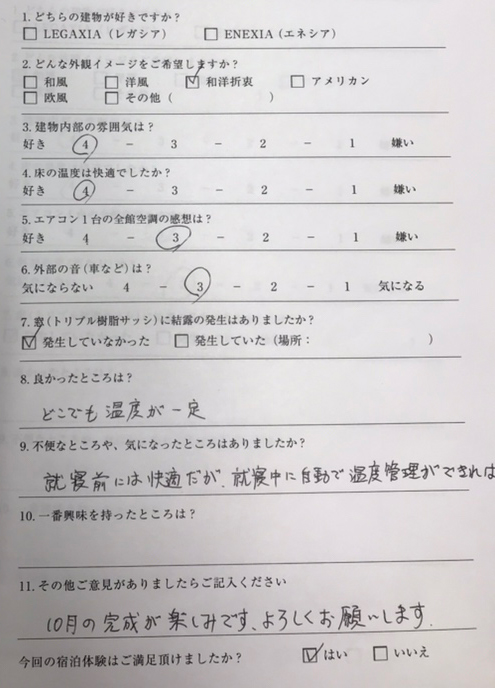 1. どちらの建物が好きですか?
□ LEGAXIA (レガシア) □ ENEXIA (エネシア)
2. どんな外観イメージをご希望しますか?
□ 和風 □ 洋風 ☑ 和洋折衷 □ アメリカン
□ 欧風 □ その他 ( )
3. 建物内部の雰囲気は?
好き 4 − 3 − 2 − 1 嫌い
4. 床の温度は快適でしたか?
好き 4 − 3 − 2 − 1 嫌い
5. エアコン1台の全館空調の感想は?
好き 4 − 3 − 2 − 1 嫌い
6. 外部の音(車など)は?
気にならない 4 − 3 − 2 − 1 気になる
7. 窓(トリプル樹脂サッシ)に結露の発生はありましたか?
☑ 発生していなかった □ 発生していた (場所: )
8. 良かったところは?
どこでも温度が一定
9. 不便なところや、気になったところはありましたか?
就寝前には快適だが、就寝中に自動で温度管理ができれは
10. 一番興味を持ったところは?
11. その他ご意見がありましたらご記入ください
10月の完成が楽しみです、よろしくお願いします.
今回の宿泊体験はご満足頂けましたか? ☑ はい □ いいえ